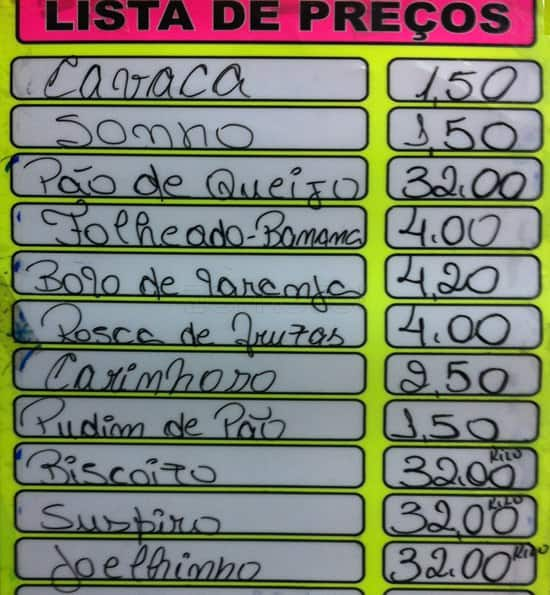 LISTA DE PREÇOS
Cavaca 1,50
Sonho 1,50
Pão de Queijo 32.00
Folheado-Banana 4.00
Bolo de laranja 4,20
Rosca de frutas 4.00
Carinhoso 2,50
Pudim de Pão 1,50
Biscoito 32.00 KILO
Suspiro 32,00 KILO
Joelhinho 32.00 KILO